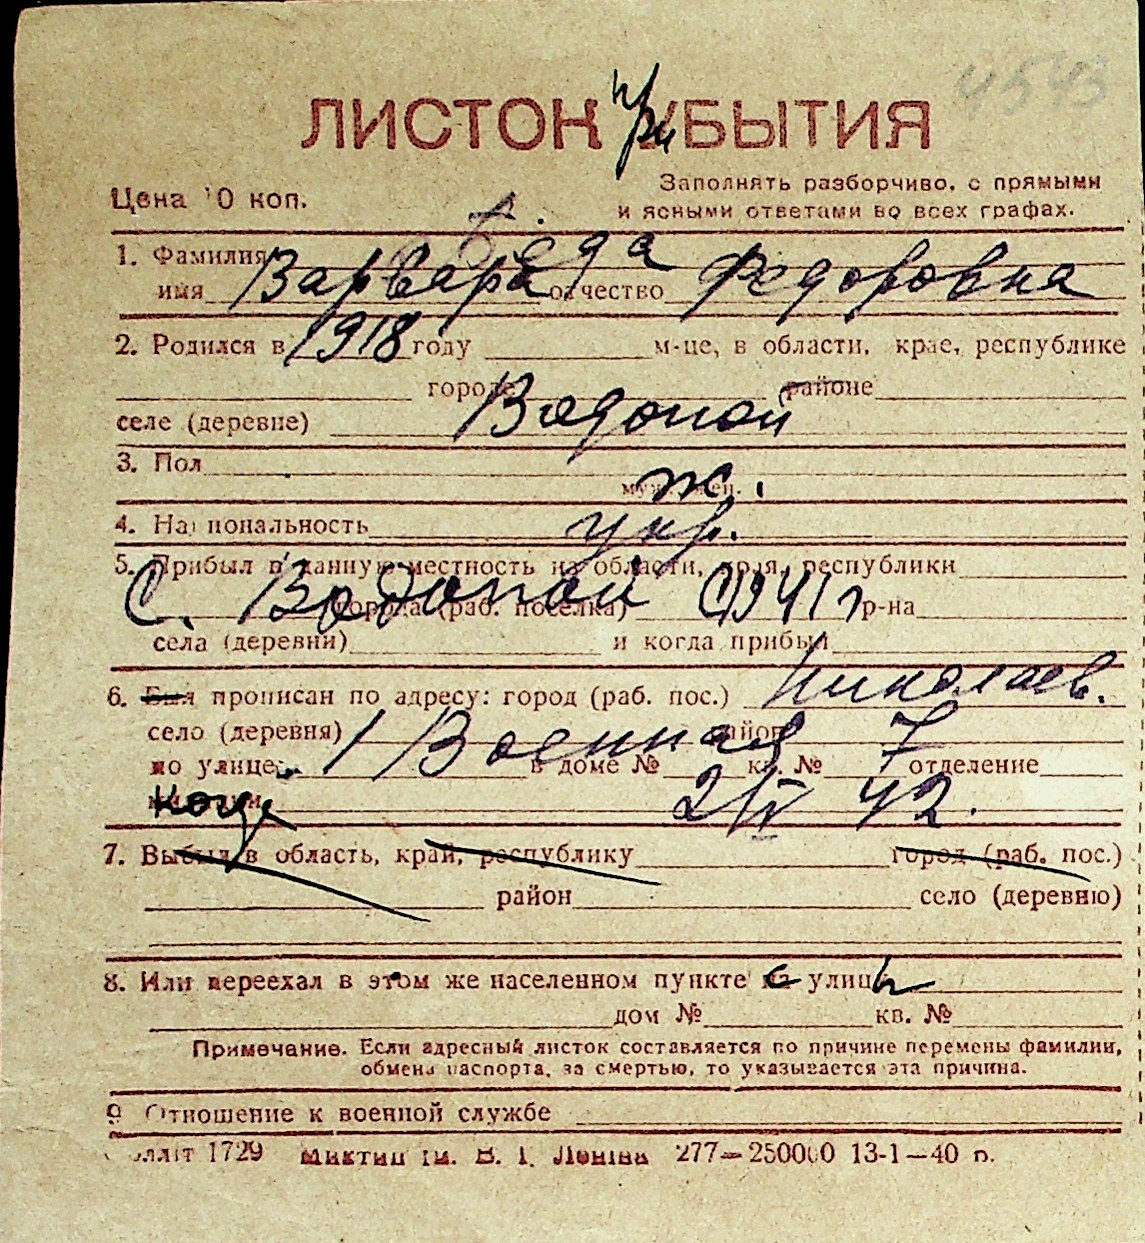 4543
ЛИСТОК при УБЫТИЯ
Цена 10 коп.
Заполнять разборчиво, с прямыми
и ясными ответами во всех графах.
1. Фамилия Беда
имя Варвара отчество Федоровна
2. Родился в 1918 году м-це, в области, крае, республике
городе районе
селе (деревне) Водопой
3. Пол ж.
4. Национальность укр.
5. Прибыл в данную местность из области, края, республики
С. Водопой С 1941 г р-на
города (раб. поселка)
села (деревни) и когда прибыл
6. Был прописан по адресу: город (раб. пос.) Николаев.
село (деревня) район
по улице 1 Военная в доме № 7 кв. № отделение
когда 2/IV 42.
7. Выбыл в область, край, республику город (раб. пос.)
район село (деревню)
8. Или переехал в этом же населенном пункте с улицы
дом № кв. №
Примечание. Если адресный листок составляется по причине перемены фамилии,
обмена паспорта, за смертью, то указывается эта причина.
9 Отношение к военной службе
1729 ім. В. І. Леніна 277—250000 13-1—40 р.